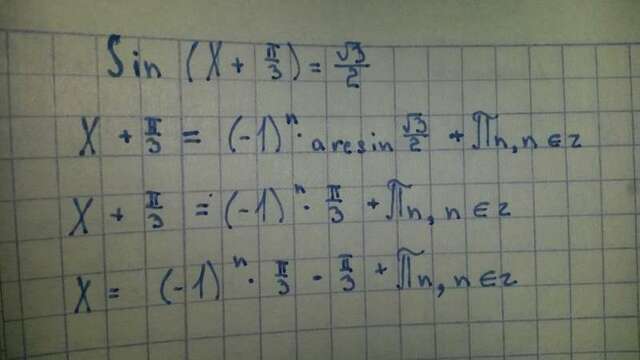 Sin (X + π/3) = √3/2
X + π/3 = (-1)ⁿ · arcsin √3/2 + πn, n ∈ z
X + π/3 = (-1)ⁿ · π/3 + πn, n ∈ z
X = (-1)ⁿ · π/3 - π/3 + πn, n ∈ z